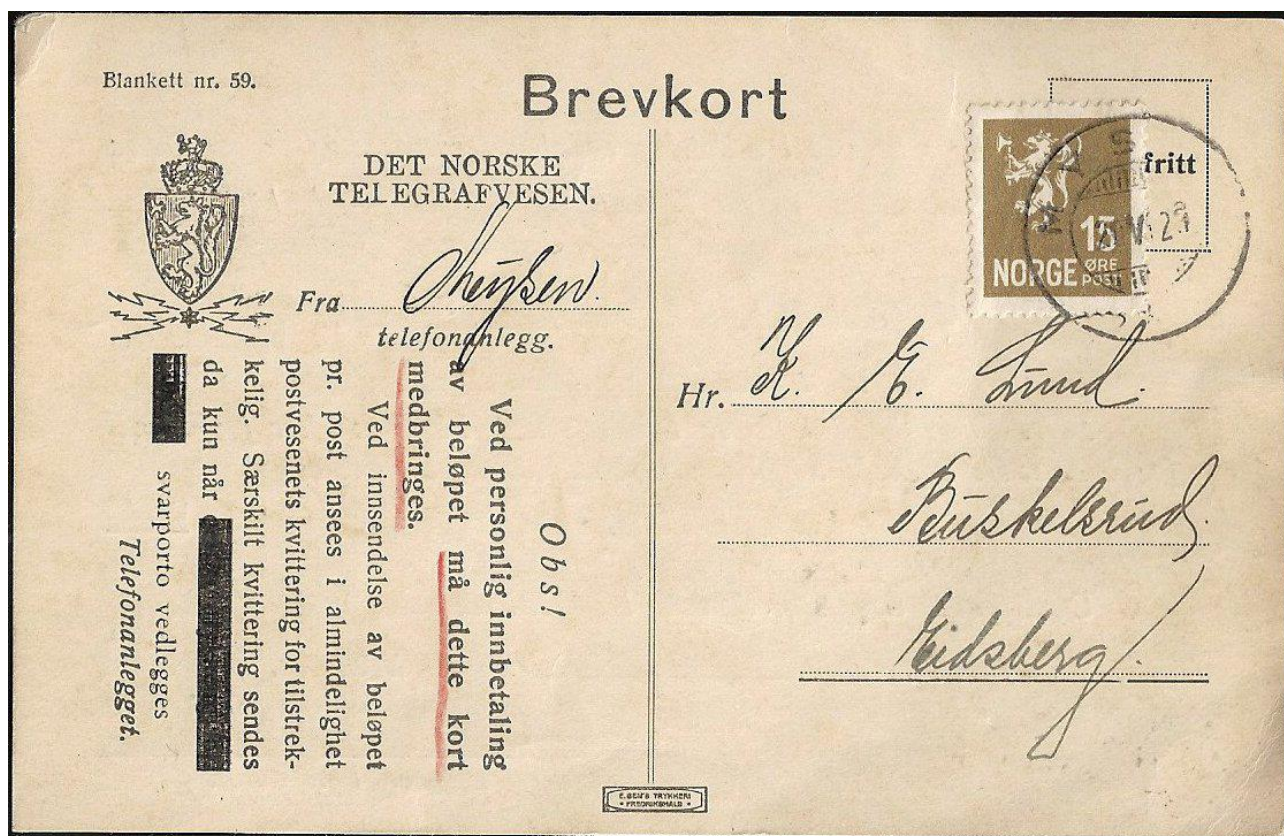 Blankett nr. 59.
Brevkort
DET NORSKE
TELEGRAFVESEN.
Fra Mysen.
telefonanlegg.
Obs!
Ved personlig innbetaling
av beløpet må dette kort
medbringes.
Ved innsendelse av beløpet
pr. post ansees i almindelighet
postvesenets kvittering for tilstrek-
kelig. Særskilt kvittering sendes
da kun når
svarporto vedlegges
Telefonanlegget.
fritt
15
NORGE ØRE
POST
Hr. K. E. Lund.
Buskelsrud,
Eidsberg.
E. SEM'S TRYKKERI
FREDRIKSHALD